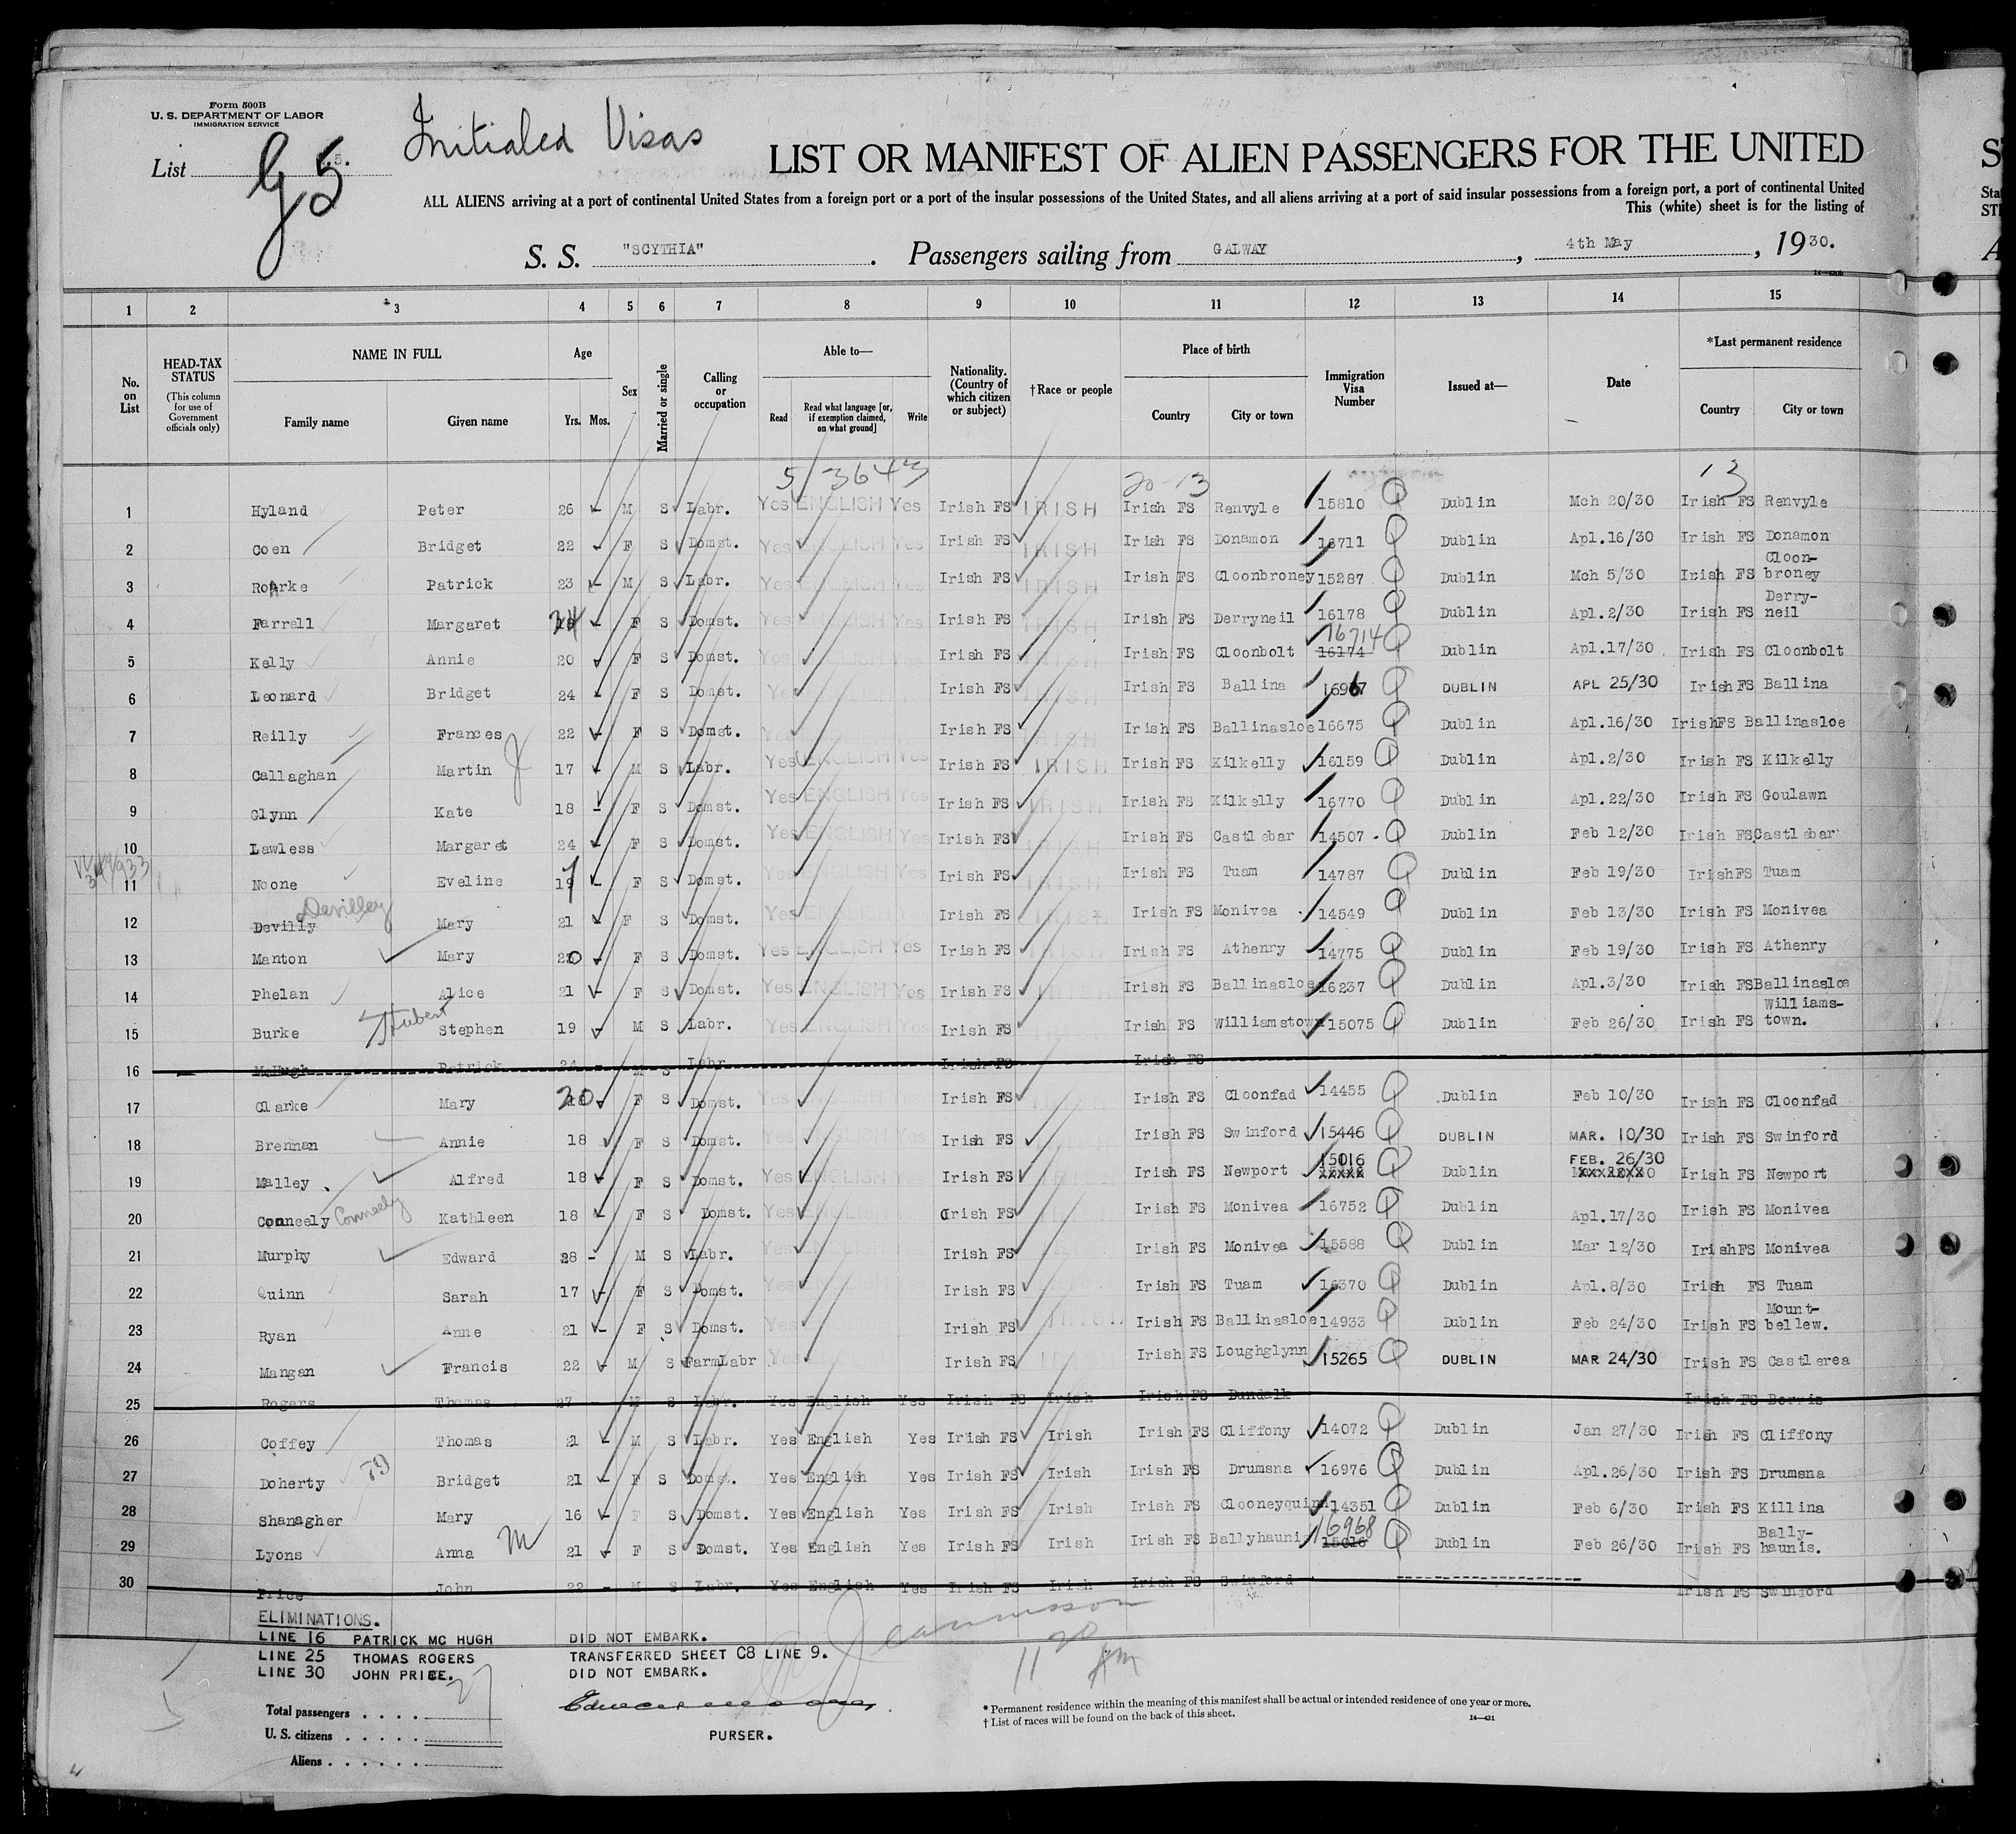 Form 500B
U. S. DEPARTMENT OF LABOR
IMMIGRATION SERVICE
List G5
Initialed Visas
LIST OR MANIFEST OF ALIEN PASSENGERS FOR THE UNITED
ALL ALIENS arriving at a port of continental United States from a foreign port or a port of the insular possessions of the United States, and all aliens arriving at a port of said insular possessions from a foreign port, a port of continental United
This (white) sheet is for the listing of
S. S. "SCYTHIA". Passengers sailing from GALWAY, 4th May, 1930.
1 2 3 4 5 6 7 8 9 10 11 12 13 14 15
No. on List
HEAD-TAX STATUS (This column for use of Government officials only)
NAME IN FULL Family name Given name
Age Yrs. Mos.
Sex
Married or single
Calling or occupation
Able to— Read Read what language [or, if exemption claimed, on what ground] Write
Nationality. (Country of which citizen or subject)
†Race or people
Place of birth Country City or town
Immigration Visa Number
Issued at—
Date
*Last permanent residence Country City or town
5/3643 20-13 13
1 Hyland Peter 26 - M S Labr. Yes ENGLISH Yes Irish FS IRISH Irish FS Renvyle 15810 Dublin Mch 20/30 Irish FS Renvyle
2 Coen Bridget 22 - F S Domst. Yes ENGLISH Yes Irish FS IRISH Irish FS Donamon 16711 Dublin Apl.16/30 Irish FS Donamon
3 Roarke Patrick 23 - M S Labr. Yes ENGLISH Yes Irish FS IRISH Irish FS Cloonbroney 15287 Dublin Mch 5/30 Irish FS Cloon-broney
4 Farrell Margaret 24 - F S Domst. Yes ENGLISH Yes Irish FS IRISH Irish FS Derryneil 16178 Dublin Apl.2/30 Irish FS Derry-neil
5 Kelly Annie 20 - F S Domst. Irish FS IRISH Irish FS Cloonbolt 16174 16714 Dublin Apl.17/30 Irish FS Cloonbolt
6 Leonard Bridget 24 - F S Domst. Irish FS IRISH Irish FS Ballina 16967 DUBLIN APL 25/30 Irish FS Ballina
7 Reilly Frances 22 - F S Domst. Irish FS IRISH Irish FS Ballinasloe 16675 Dublin Apl.16/30 Irish FS Ballinasloe
8 Callaghan Martin J 17 - M S Labr. Yes ENGLISH Yes Irish FS IRISH Irish FS Kilkelly 16159 Dublin Apl.2/30 Irish FS Kilkelly
9 Glynn Kate 18 - F S Domst. Yes ENGLISH Yes Irish FS IRISH Irish FS Kilkelly 16770 Dublin Apl.22/30 Irish FS Goulawn
10 Lawless Margaret 24 - F S Domst. Yes ENGLISH Yes Irish FS IRISH Irish FS Castlebar 14507 Dublin Feb 12/30 Irish FS Castlebar
11 Noone Eveline 17 - F S Domst. Yes ENGLISH Yes Irish FS IRISH Irish FS Tuam 14787 Dublin Feb 19/30 Irish FS Tuam
12 Devilly Devilley Mary 21 - F S Domst. Yes ENGLISH Yes Irish FS IRISH Irish FS Monivea 14549 Dublin Feb 13/30 Irish FS Monivea
13 Manton Mary 20 - F S Domst. Yes ENGLISH Yes Irish FS IRISH Irish FS Athenry 14775 Dublin Feb 19/30 Irish FS Athenry
14 Phelan Alice 21 - F S Domst. Yes ENGLISH Yes Irish FS IRISH Irish FS Ballinasloe 16237 Dublin Apl.3/30 Irish FS Ballinasloe
15 Burke Hubert Stephen 19 - M S Labr. Yes ENGLISH Yes Irish FS Irish FS Williamstown 15075 Dublin Feb 26/30 Irish FS Williams-town.
16 McHugh Patrick 24 - M S Labr. Irish FS Irish FS
17 Clarke Mary 20 - F S Domst. Irish FS Irish FS Cloonfad 14455 Dublin Feb 10/30 Irish FS Cloonfad
18 Brennan Annie 18 - F S Domst. Irish FS Irish FS Swinford 15446 DUBLIN MAR. 10/30 Irish FS Swinford
19 Malley Alfred 18 - F S Domst. Yes ENGLISH Yes Irish FS Irish FS Newport 15016 Dublin FEB. 26/30 Irish FS Newport
20 Conneely Conneely Kathleen 18 - F S Domst. Yes ENGLISH Irish FS Irish FS Monivea 16752 Dublin Apl.17/30 Irish FS Monivea
21 Murphy Edward 28 - M S Labr. Irish FS Irish FS Monivea 15588 Dublin Mar 12/30 Irish FS Monivea
22 Quinn Sarah 17 - F S Domst. Irish FS Irish FS Tuam 16370 Dublin Apl.8/30 Irish FS Tuam
23 Ryan Anne 21 - F S Domst. Irish FS Irish FS Ballinasloe 14933 Dublin Feb 24/30 Irish FS Mount-bellew.
24 Mangan Francis 22 - M S FarmLabr Irish FS Irish FS Loughglynn 15265 DUBLIN MAR 24/30 Irish FS Castlerea
25 Rogers Thomas 27 - M S Labr. Yes English Yes Irish FS Irish Irish FS Dundalk Irish FS Borris
26 Coffey Thomas 21 - M S Labr. Yes English Yes Irish FS Irish Irish FS Cliffony 14072 Dublin Jan 27/30 Irish FS Cliffony
27 Doherty Bridget 21 - F S Domst. Yes English Yes Irish FS Irish Irish FS Drumsna 16976 Dublin Apl.26/30 Irish FS Drumsna
28 Shanagher Mary 16 - F S Domst. Yes English Yes Irish FS Irish Irish FS Clooneyquinn 14351 Dublin Feb 6/30 Irish FS Killina
29 Lyons Anna M 21 - F S Domst. Yes English Yes Irish FS Irish Irish FS Ballyhaunis 15016 16968 Dublin Feb 26/30 Irish FS Bally-haunis.
30 Price John 22 - M S Labr. Yes English Yes Irish FS Irish Irish FS Swinford Irish FS Swinford
ELIMINATIONS.
LINE 16 PATRICK MC HUGH DID NOT EMBARK.
LINE 25 THOMAS ROGERS TRANSFERRED SHEET C8 LINE 9.
LINE 30 JOHN PRICE. DID NOT EMBARK.
27
11 20 PM
Total passengers . . . .
U. S. citizens . . . . .
Aliens . . . . . .
PURSER.
* Permanent residence within the meaning of this manifest shall be actual or intended residence of one year or more.
† List of races will be found on the back of this sheet.
14—431